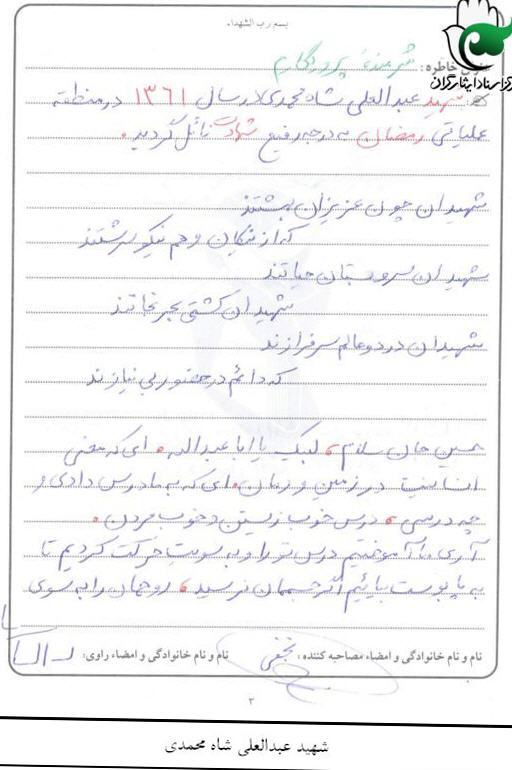 بسم رب الشهداء
عنوان خاطره: شرمندهٔ پروردگارم
مرکز اسناد ایثارگران
شهید عبدالعلی شاه محمدی در سال ۱۳۶۱ در منطقه
عملیاتی رمضان به درجه رفیع شهادت نائل گردید.
شهیدان چون عزیزان بهشتند
که از نیکان و هم نیکو سرشتند
شهیدان سروستان حیاتند
شهیدان کشتی بحر نجاتند
شهیدان در دو عالم سرفرازند
که دائم در حضور بی نیازند
حسین جان سلام، لبیک یا ابا عبدالله. ای که معنی
انسانیت در زمین و زمان. ای که به ما درس دادی و
چه درسی، درس خوب زیستن و خوب مردن.
آری ما آموختیم درس تو را و به سویت حرکت کردیم تا
به پابوست بیائیم اگر جسمان نرسید، روحمان را به سوی
نام و نام خانوادگی و امضاء مصاحبه کننده: نجفی
نام و نام خانوادگی و امضاء راوی:
۳
شهید عبدالعلی شاه محمدی